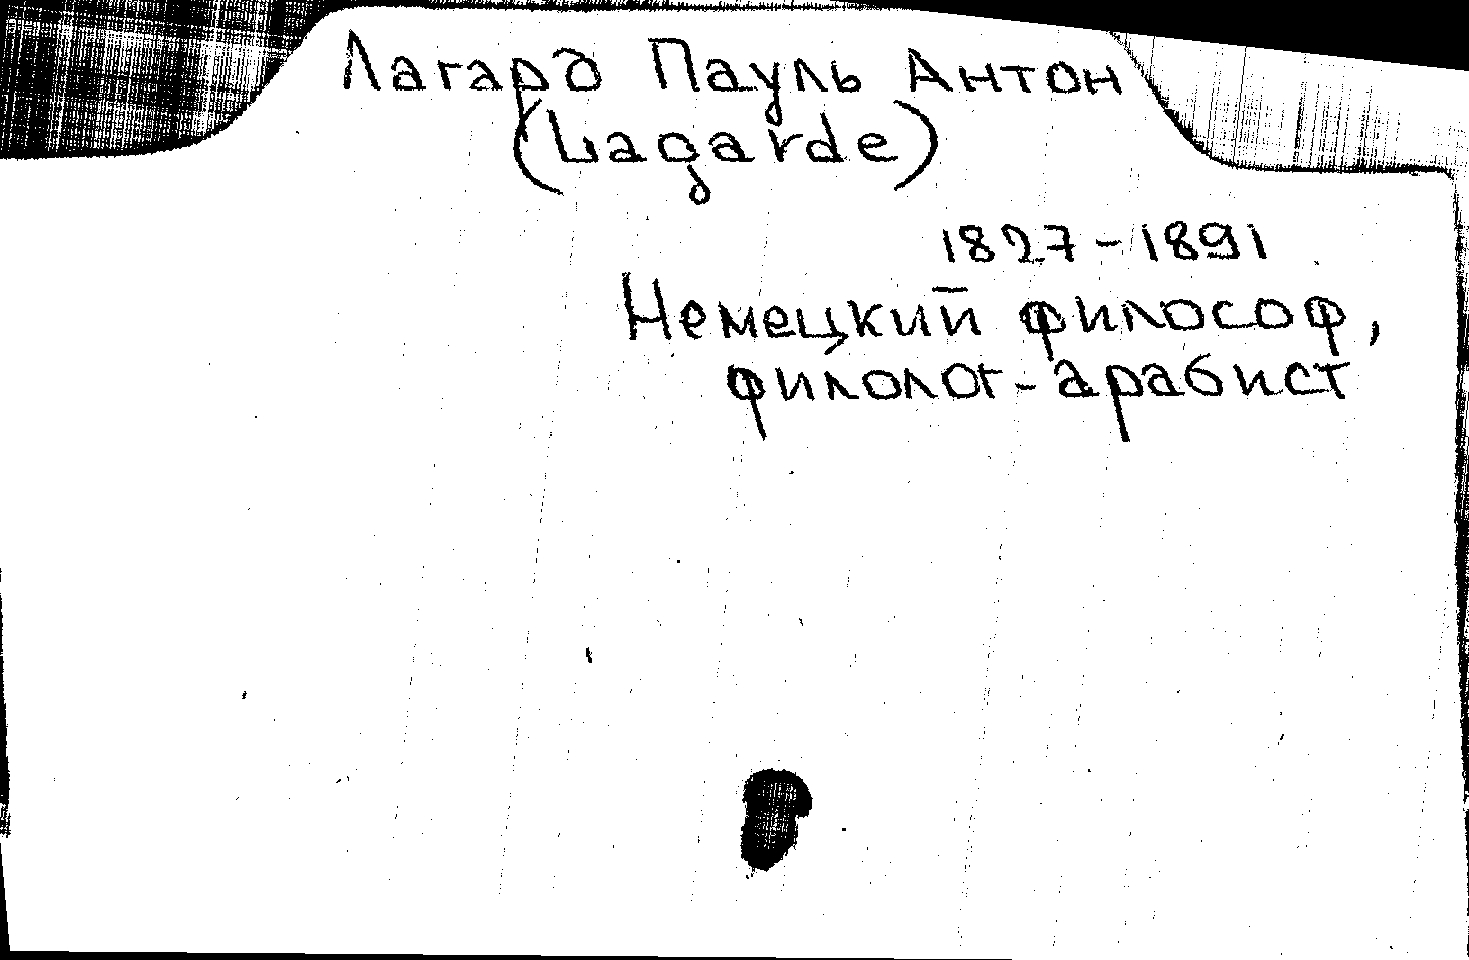 Лагард Пауль Антон
(Lagarde)
1827-1891
Немецкий философ,
филолог-арабист